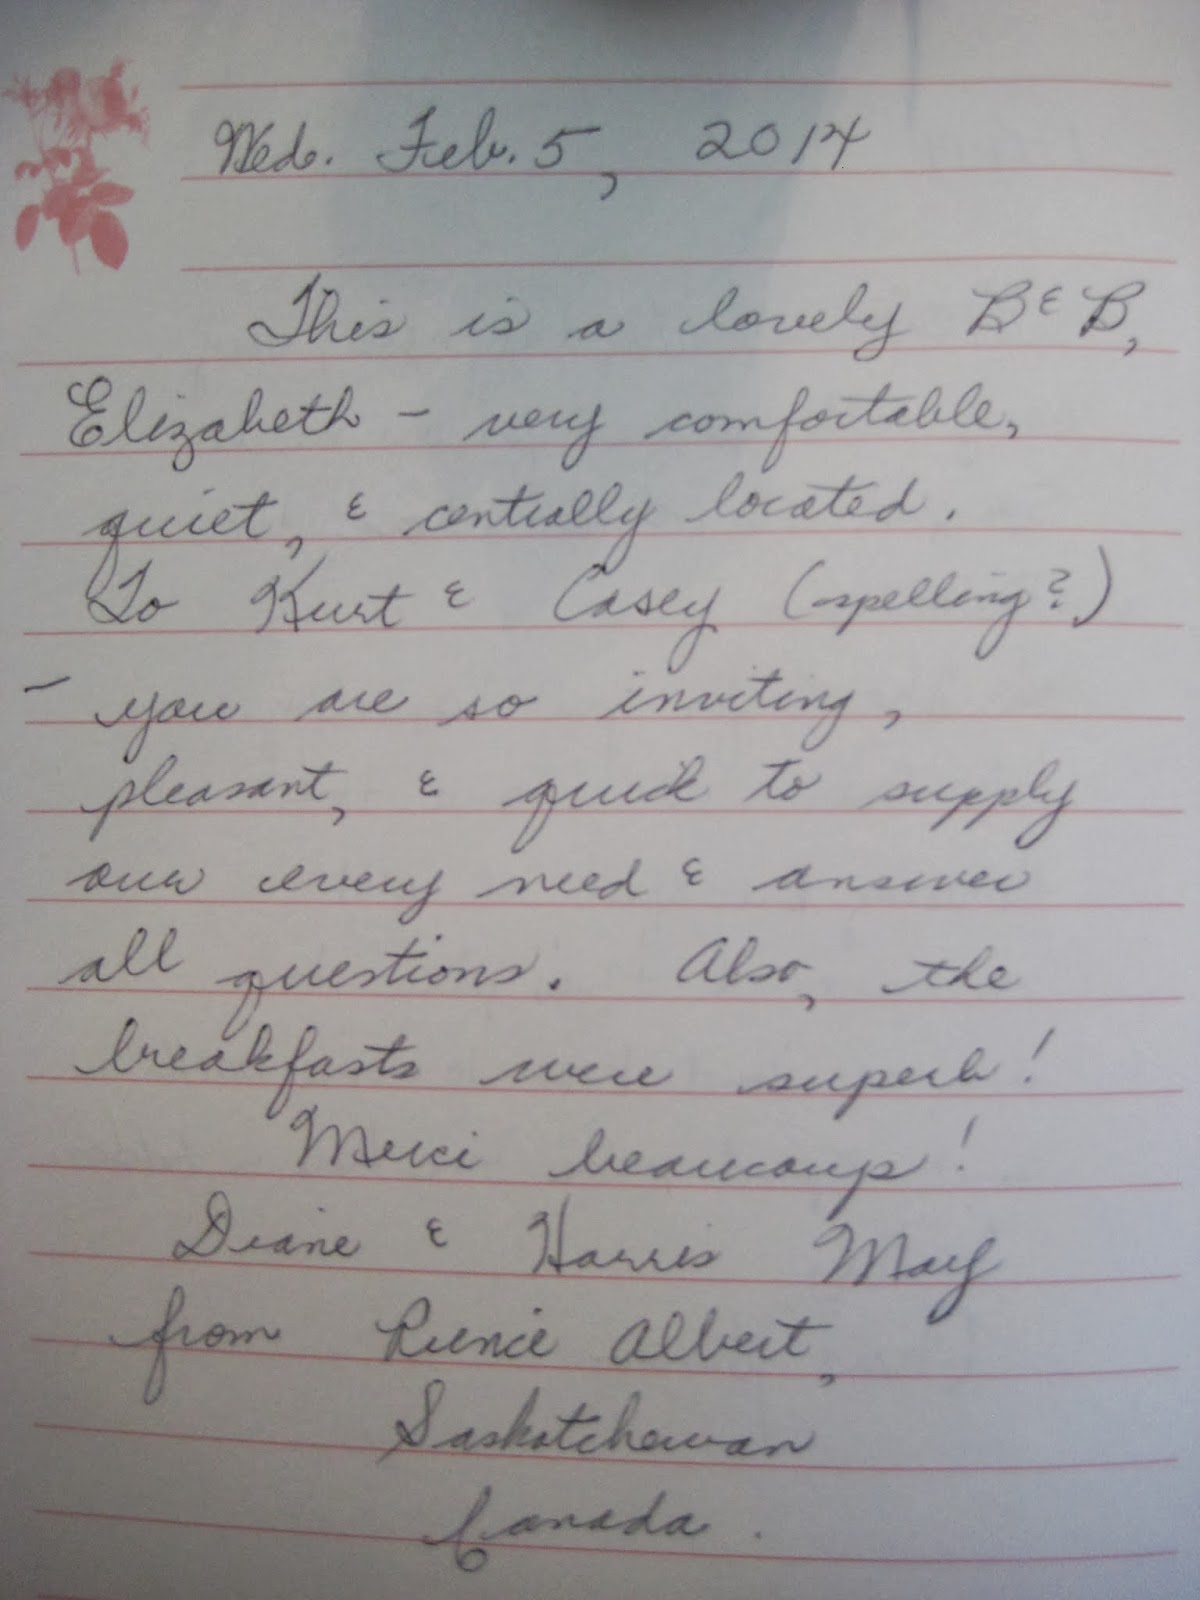 Wed. Feb. 5, 2014
This is a lovely B & B,
Elizabeth - very comfortable,
quiet, & centrally located.
To Kurt & Casey (spelling?)
- you are so inviting,
pleasant, & quick to supply
our every need & answer
all questions. Also, the
breakfasts were superb!
Merci beaucoup!
Diane & Harris May
from Prince Albert,
Saskatchewan
Canada.